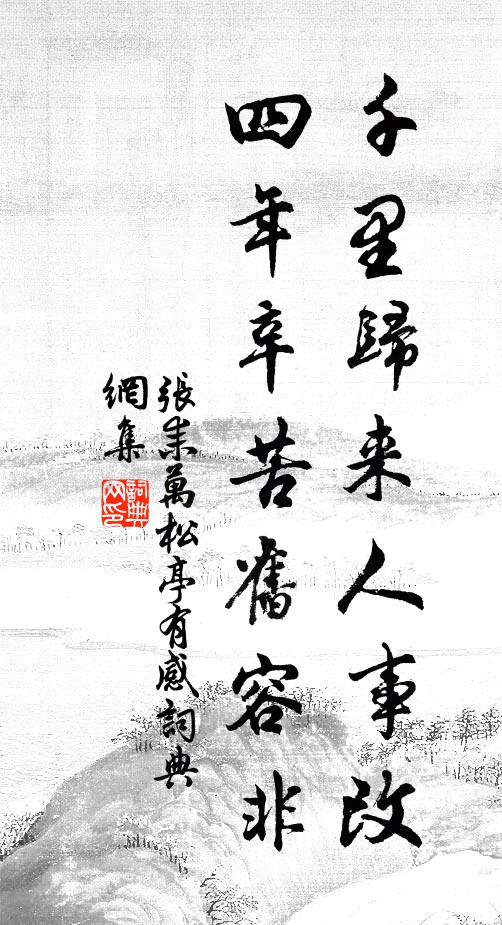 千里歸来人事改
四年辛苦舊容非
張耒萬松亭有感詞典
網集
詞典
网印